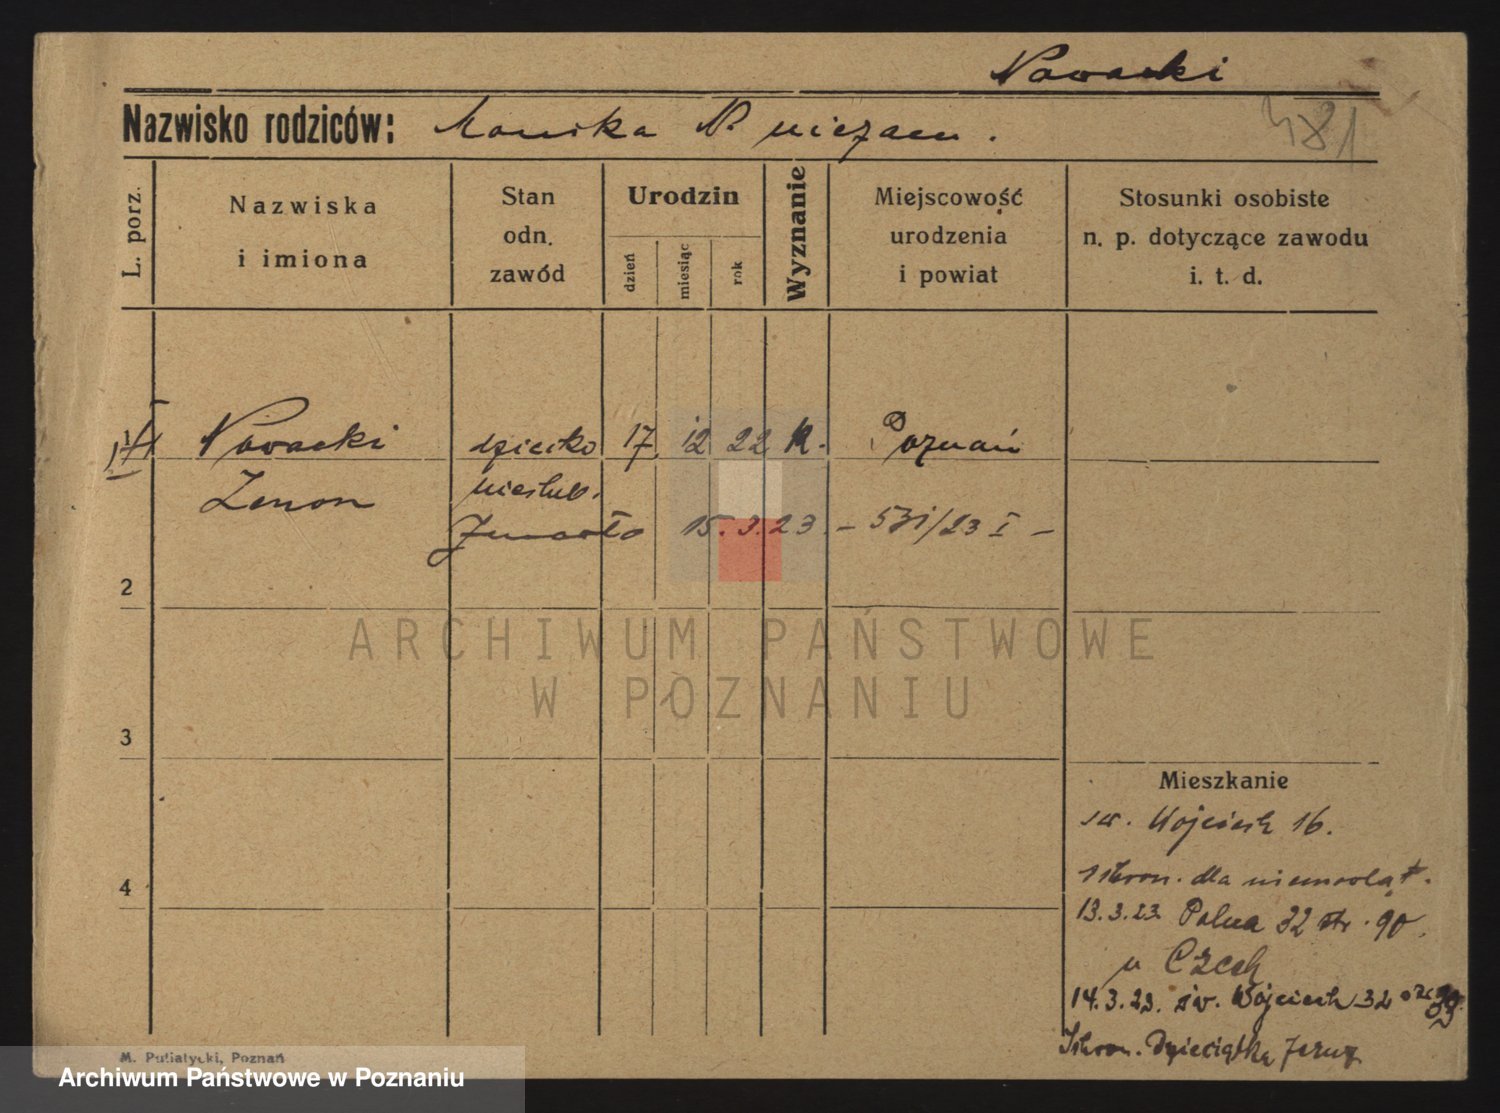 Nowacki
Nazwisko rodziców: Monika N. niezam.
L. porz.
Nazwiska
i imiona
Stan
odn.
zawód
Urodzin
dzień
miesiąc
rok
Wyznanie
Miejscowość
urodzenia
i powiat
Stosunki osobiste
n. p. dotyczące zawodu
i. t. d.
Nowacki dziecko 17 12 22 k. Poznań
Zenon nieślub.
Zmarło 15.3.23 – 531/23 I –
2
ARCHIWUM PAŃSTWOWE
W POZNANIU
3
4
Mieszkanie
św. Wojciech 16.
schron. dla niemowląt.
13.3.23. Polna 32 str. 90.
u Czech
14.3.23. św. Wojciech
Schron. Dzieciątka Jezus
M. Putiatycki, Poznań
Archiwum Państwowe w Poznaniu